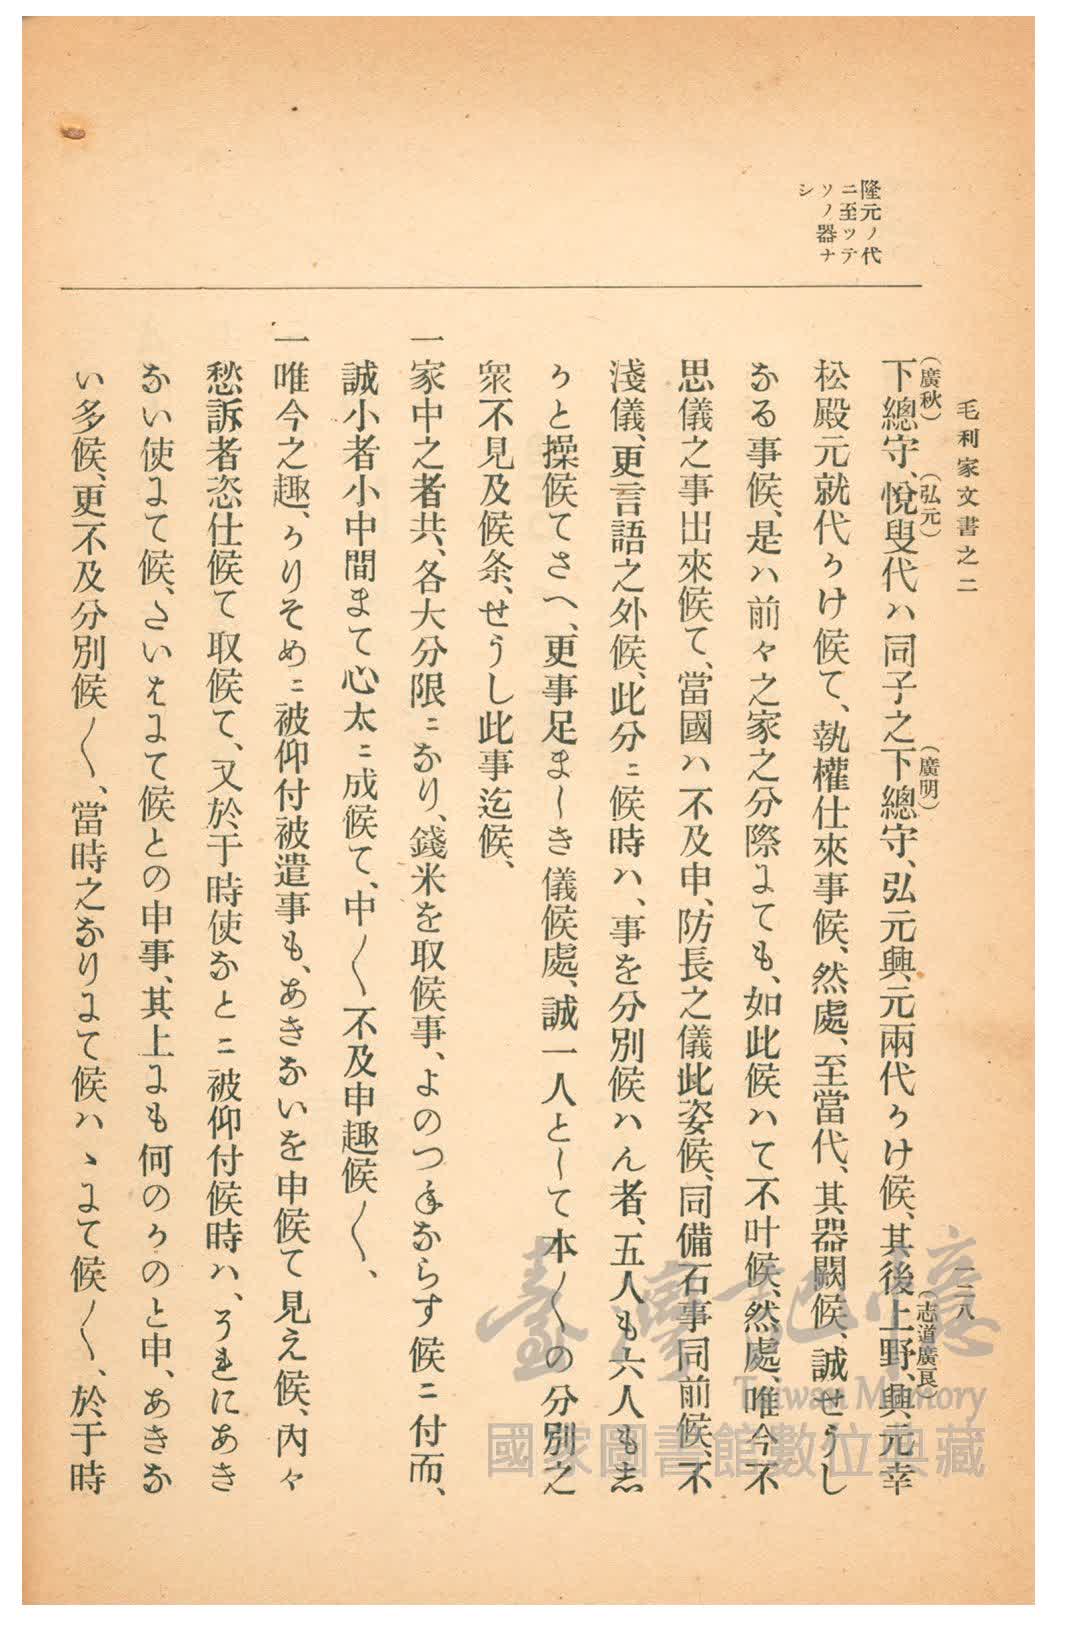 毛利家文書之二
二二八
隆元ノ代
ニ至ッテ
ソノ器ナ
シ
(廣秋)
(弘元)
(廣明)
(志道廣良)
下總守、悅叟代ハ同子之下總守、弘元興元兩代うけ候、其後上野、興元幸
松殿元就代うけ候て、執權仕來事候、然處、至當代、其器闕候、誠せうし
なる事候、是ハ前々之家之分際にても、如此候ハて不叶候、然處、唯今不
思儀之事出來候て、當國ハ不及申、防長之儀此姿候、同備石事同前候、不
淺儀、更言語之外候、此分ニ候時ハ、事を分別候ハん者、五人も六人も志
かと操候てさへ、更事足ましき儀候處、誠一人として本〱の分別之
衆不見及候条、せうし此事迄候、
一家中之者共、各大分限ニなり、錢米を取候事、よのつ年ならす候ニ付而、
誠小者小中間まて心太ニ成候て、中〱不及申趣候〱、
一唯今之趣、かりそめニ被仰付被遣事も、あきないを申候て見え候、內々
愁訴者恣仕候て取候て、又於于時使なとニ被仰付候時ハ、うれにあき
ない使にて候、さいはにて候との申事、其上にも何のかのと申、あきな
い多候、更不及分別候〱、當時之なりにて候ハヽにて候〱、於于時
臺灣記憶
Taiwan Memory
國家圖書館數位典藏